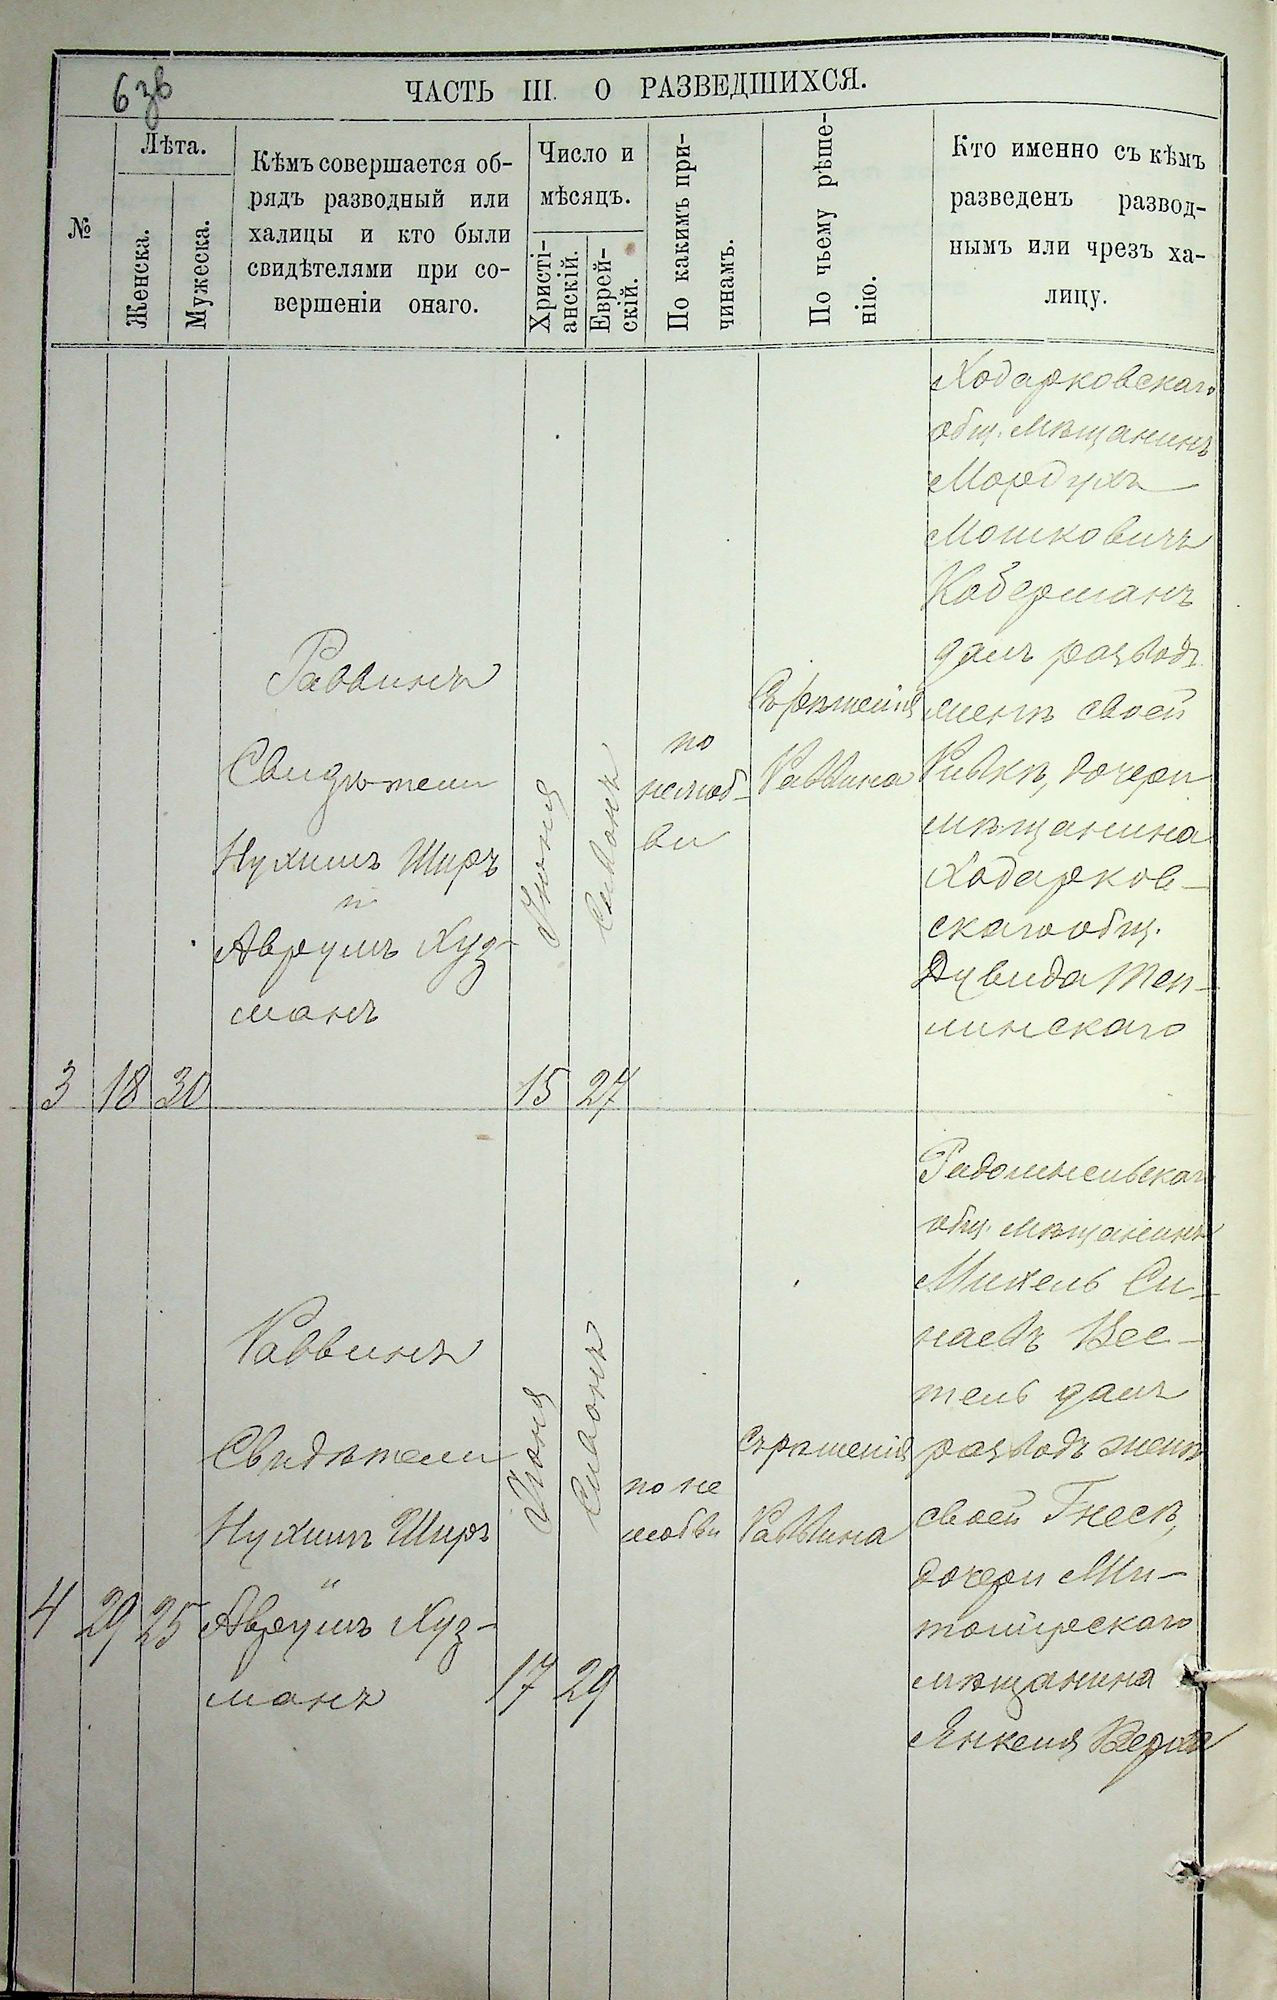 6 зв
ЧАСТЬ III. О РАЗВЕДШИХСЯ.
№
Лѣта.
Женска.
Мужеска.
Кѣмъ совершается об-
рядъ разводный или
халицы и кто были
свидѣтелями при со-
вершеніи онаго.
Число и
мѣсяцъ.
Христі-
анскій.
Еврей-
скій.
По какимъ при-
чинамъ.
По чьему рѣше-
нію.
Кто именно съ кѣмъ
разведенъ развод-
нымъ или чрезъ ха-
лицу.
3
18
30
Раввинъ
Свидѣтели
НухимъШиръ
и
Аврумъ Хуз-
манъ
Іюня
15
Сивонъ
27
по
нелюб-
ви
Съ рѣшенія
Раввина
Ходарковскаго
общ. мѣщанинъ
Мордухъ
Мошковичъ
Коберманъ
далъ разводъ
женѣ своей
Ривкѣ, дочери
мѣщанина
Ходарков-
скаго общ.
Дувида Теп-
линскаго
4
29
25
Раввинъ
Свидѣтели
Нухимъ Ширъ
и
Аврумъ Хуз-
манъ
Іюня
17
Сивонъ
29
по не
любви
Съ рѣшенія
Раввина
Радомысльскаго
общ. мѣщанинъ
Михель Си-
наевъ Вес-
тель далъ
разводъ женѣ
своей Гнесѣ,
дочери Жи-
томирскаго
мѣщанина
Янкеля